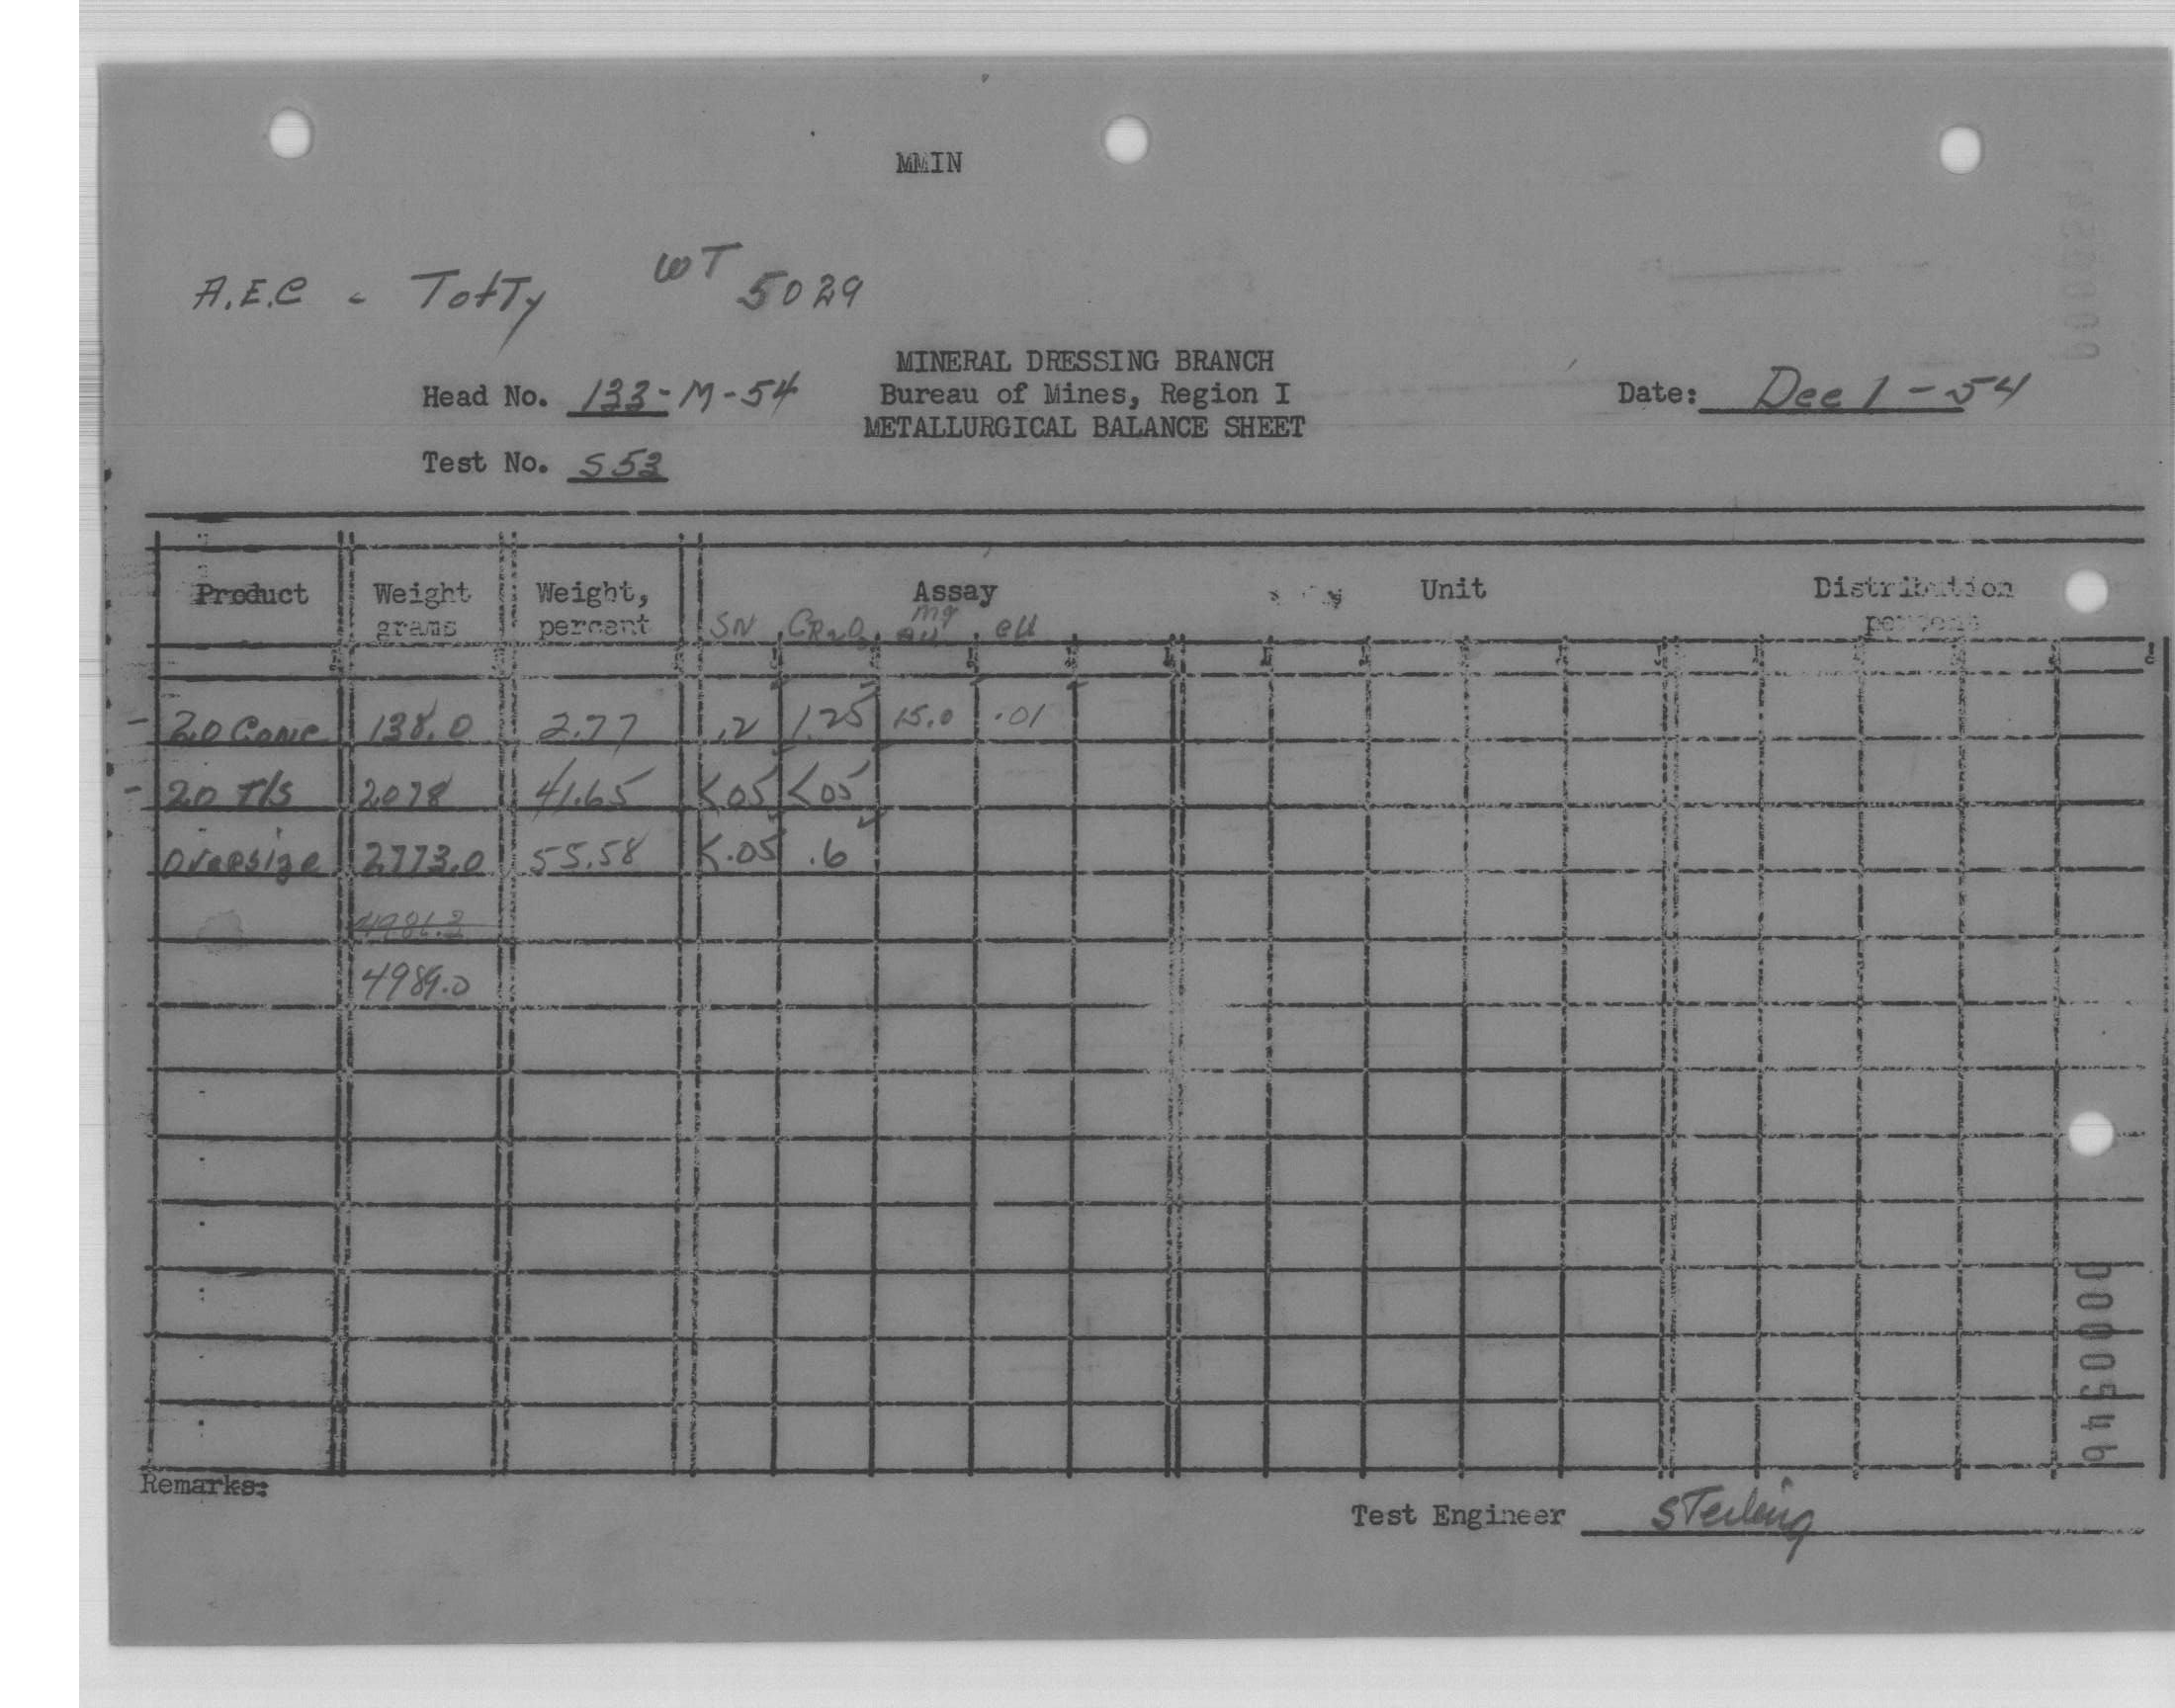 MMIN
A.E.C - Totty WT 5029
MINERAL DRESSING BRANCH
Head No. 133-M-54 Bureau of Mines, Region I Date: Dec 1-54
METALLURGICAL BALANCE SHEET
Test No. S53
Product Weight grams Weight, percent Assay Unit Distribution percent
SN CR2O3 mg au eU
-20 Conc 138.0 2.77 .2 1.25 15.0 .01
-20 T/S 2078 41.65 <05 <05
Oversize 2773.0 55.58 <.05 .6
4989.0
Remarks:
Test Engineer Sterling